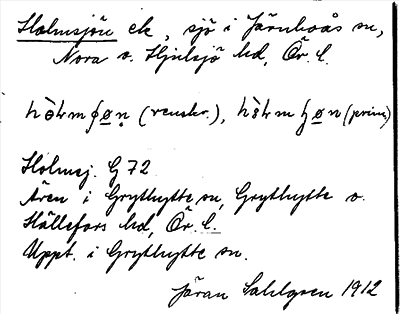 Holmsjön ek, sjö i Järnboås sn,
Nora o. Hjulsjö hd, Ör. l.
(renskr.), (prim)
Holmsj. G 72
Även i Grythytte sn, Grythytte o.
Hällefors hd, Ör. l.
Uppt. i Grythytte sn.
Jöran Sahlgren 1912